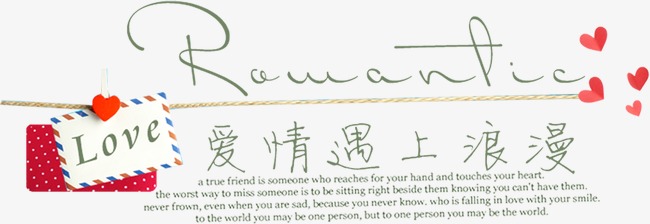 Romantic
Love
爱情遇上浪漫
a true friend is someone who reaches for your hand and touches your heart.
the worst way to miss someone is to be sitting right beside them knowing you can't have them.
never frown, even when you are sad, because you never know. who is falling in love with your smile.
to the world you may be one person, but to one person you may be the world.